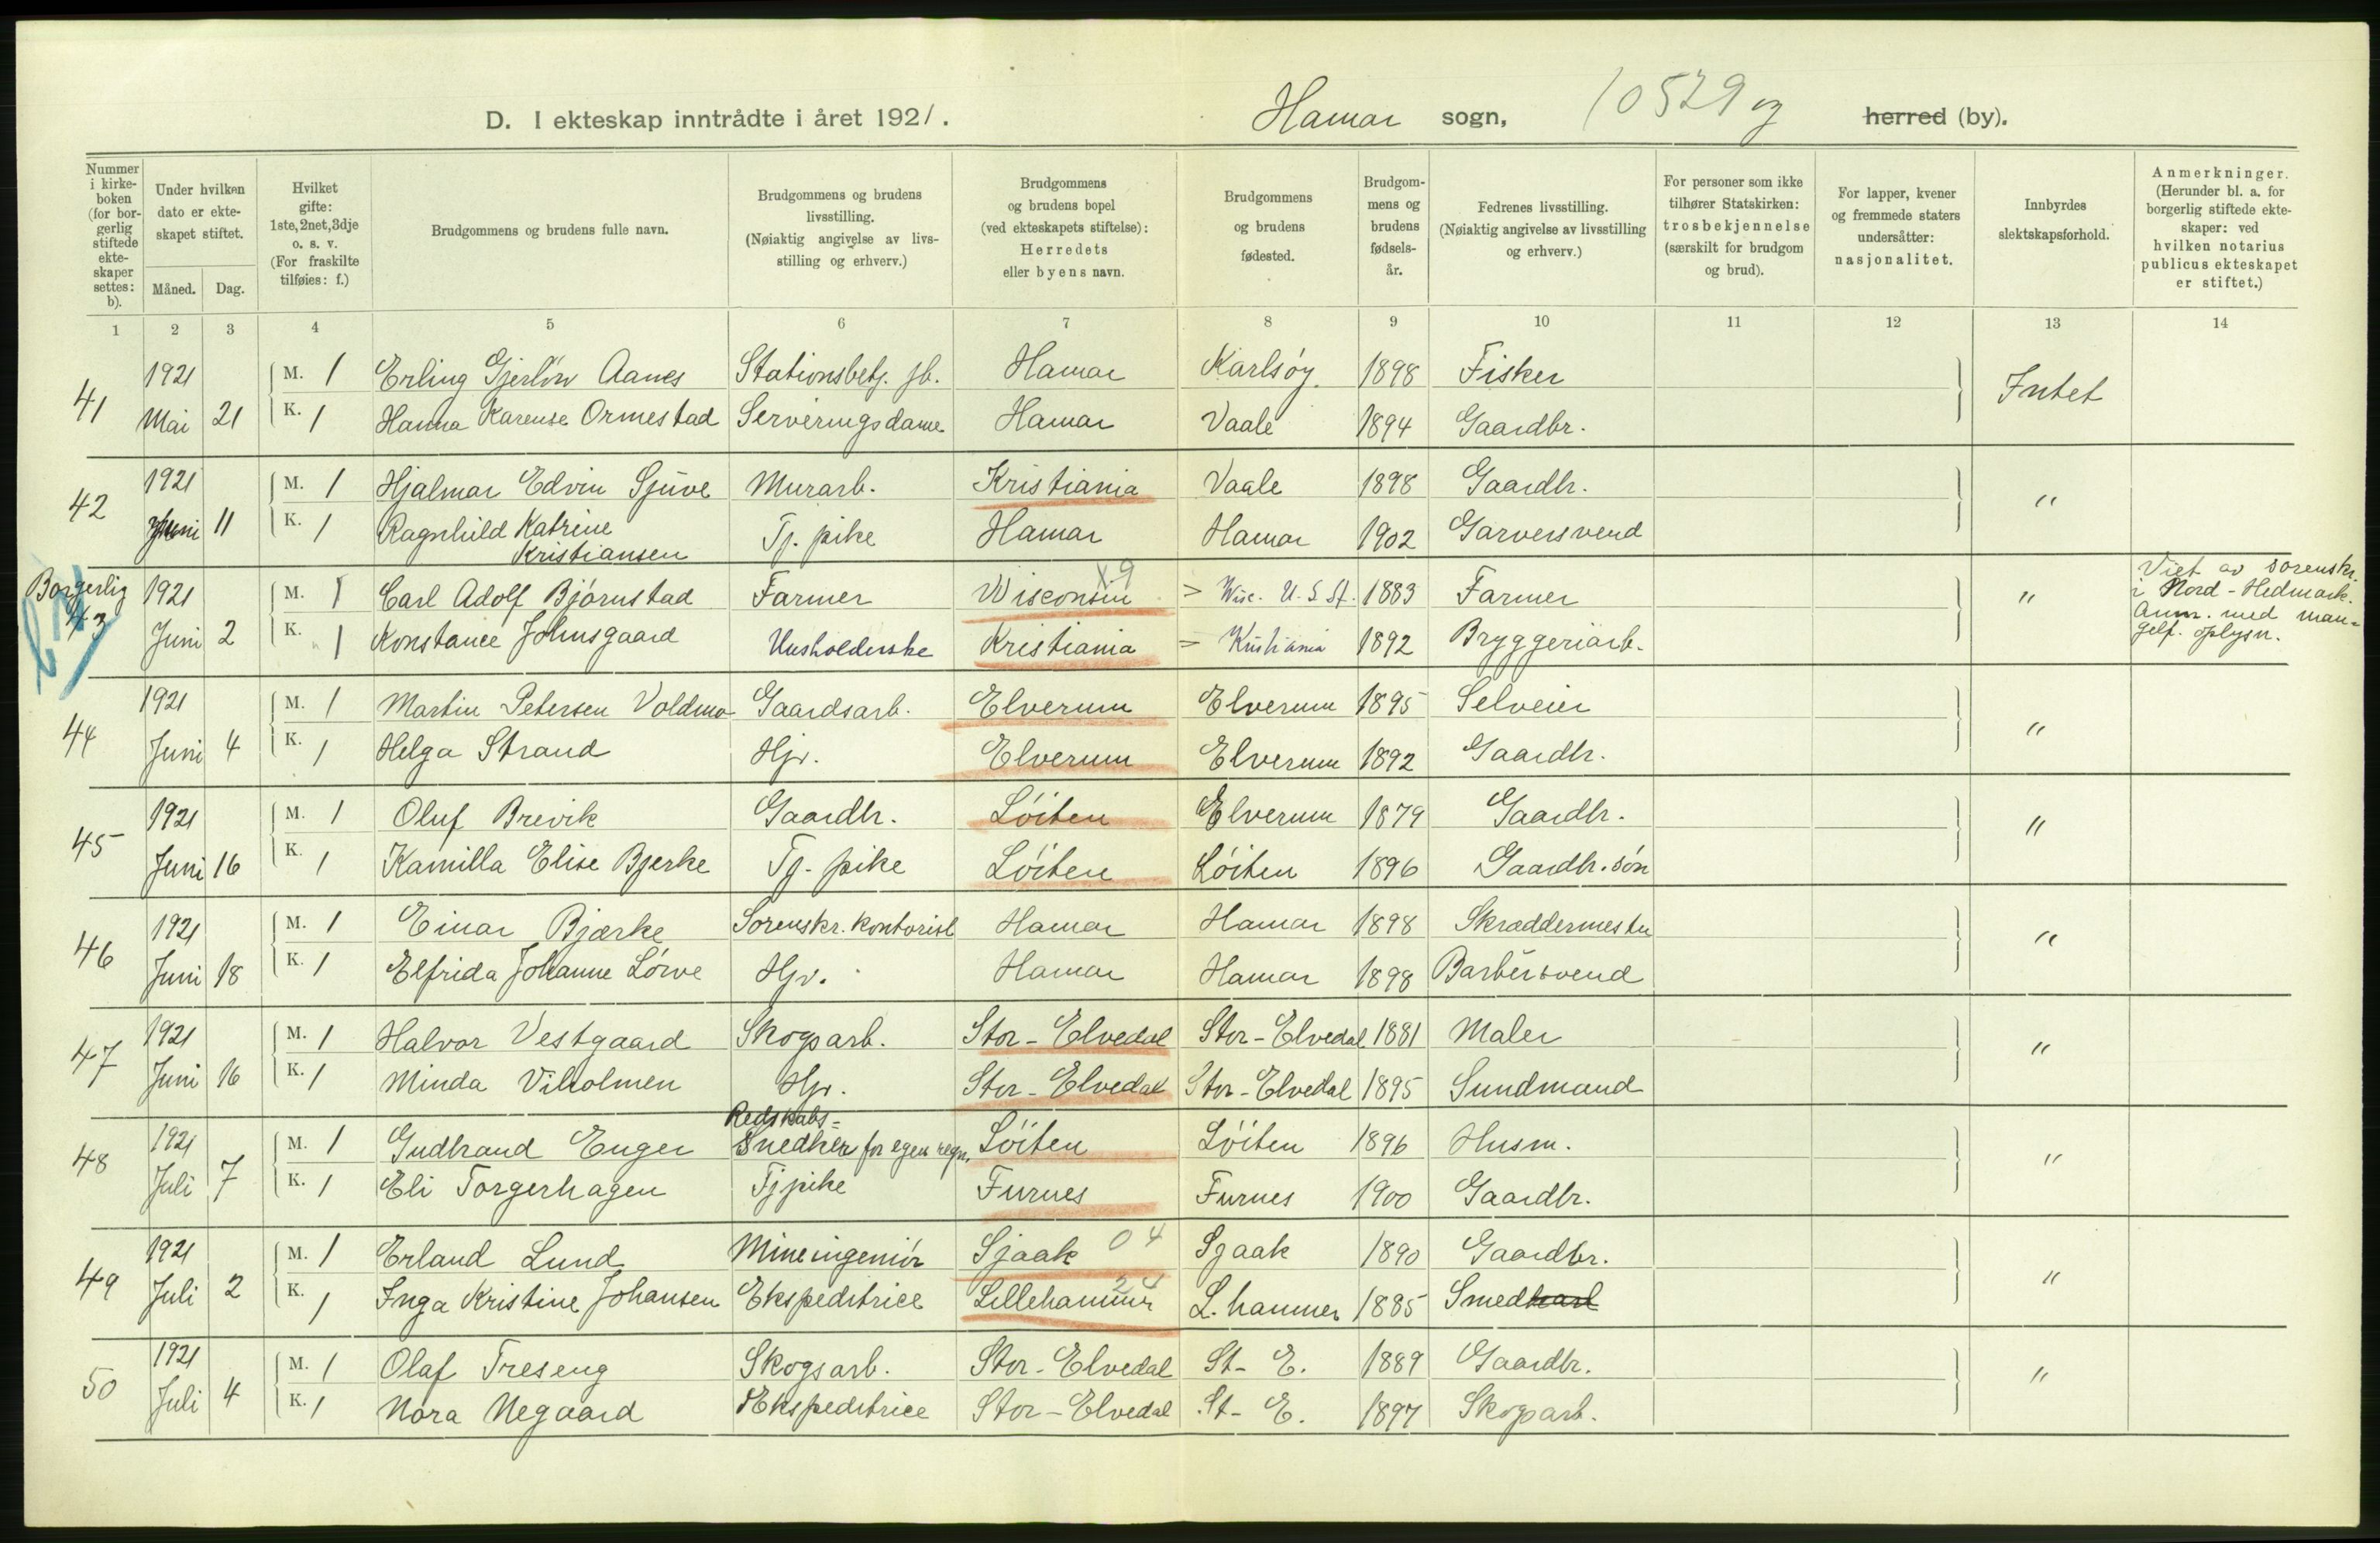 D. I ekteskap inntrådte i året 1921. Hamar sogn, 10529 og herred (by).
Nummer i kirkeboken (for borgerlig stiftede ekteskaper settes: b).
Under hvilken dato er ekteskapet stiftet.
Måned. Dag.
Hvilket gifte: 1ste, 2net, 3dje o. s. v. (For fraskilte tilføies: f.)
Brudgommens og brudens fulle navn.
Brudgommens og brudens livsstilling. (Nøiaktig angivelse av livsstilling og erhverv.)
Brudgommens og brudens bopel (ved ekteskapets stiftelse): Herredets eller byens navn.
Brudgommens og brudens fødested.
Brudgommens og brudens fødselsår.
Fedrenes livsstilling. (Nøiaktig angivelse av livsstilling og erhverv.)
For personer som ikke tilhører Statskirken: trosbekjennelse (særskilt for brudgom og brud).
For lapper, kvener og fremmede staters undersåtter: nasjonalitet.
Innbyrdes slektskapsforhold.
Anmerkninger. (Herunder bl. a. for borgerlig stiftede ekteskaper: ved hvilken notarius publicus ekteskapet er stiftet.)
1 2 3 4 5 6 7 8 9 10 11 12 13 14
41 1921 M. 1 Erling Gjerlöw Aanes Stationsbetj. jb. Hamar Karlsöy 1898 Fisker Intet
Mai 21 K. 1 Hanna Karense Ormestad Serveringsdame Hamar Vaale 1894 Gaardbr.
42 1921 M. 1 Hjalmar Edvin Sjuve Murarb. Kristiania Vaale 1898 Gaardbr. "
Juni 11 K. 1 Ragnhild Katrine Kristiansen Tj. pike Hamar Hamar 1902 Garversvend
Borgerlig 43 1921 M. 1 Carl Adolf Björnstad Farmer Wisconsin x9 = Wisc. U.S.St. 1883 Farmer " Viet av sorenskr. i Nord-Hedmark. Anm. med mangelf. oplysn.
Juni 2 K. 1 Konstance Johnsgaard Husholderske Kristiania = Kristiania 1892 Bryggeriarb.
44 1921 M. 1 Martin Petersen Voldmo Gaardsarb. Elverum Elverum 1895 Selveier "
Juni 4 K. 1 Helga Strand Hjv. Elverum Elverum 1892 Gaardbr.
45 1921 M. 1 Oluf Brevik Gaardbr. Löiten Elverum 1879 Gaardbr. "
Juni 16 K. 1 Kamilla Elise Bjerke Tj. pike Löiten Löiten 1896 Gaardbr. sön
46 1921 M. 1 Einar Bjærke Sorenskr. kontorist Hamar Hamar 1898 Skræddermester "
Juni 18 K. 1 Elfrida Johanne Lörve Hjv. Hamar Hamar 1898 Barbersvend
47 1921 M. 1 Halvor Vestgaard Skogsarb. Stor-Elvedal Stor-Elvedal 1881 Maler "
Juni 16 K. 1 Minda Viholmen Hjv. Stor-Elvedal Stor-Elvedal 1895 Sundmand
48 1921 M. 1 Gudbrand Enger Redskabs-Snedker for egen regn. Löiten Löiten 1896 Husm. "
Juli 7 K. 1 Eli Torgerhagen Tjpike Furnes Furnes 1900 Gaardbr.
49 1921 M. 1 Erland Lund Mineingeniör Sjaak 04 Sjaak 1890 Gaardbr. "
Juli 2 K. 1 Inga Kristine Johansen Ekspeditrice Lillehammer 24 L.hammer 1885 Smed
50 1921 M. 1 Olaf Treseng Skogsarb. Stor-Elvedal St-E. 1889 Gaardbr. "
Juli 4 K. 1 Nora Negaard Ekspeditrice Stor-Elvedal St-E. 1897 Skogsarb.